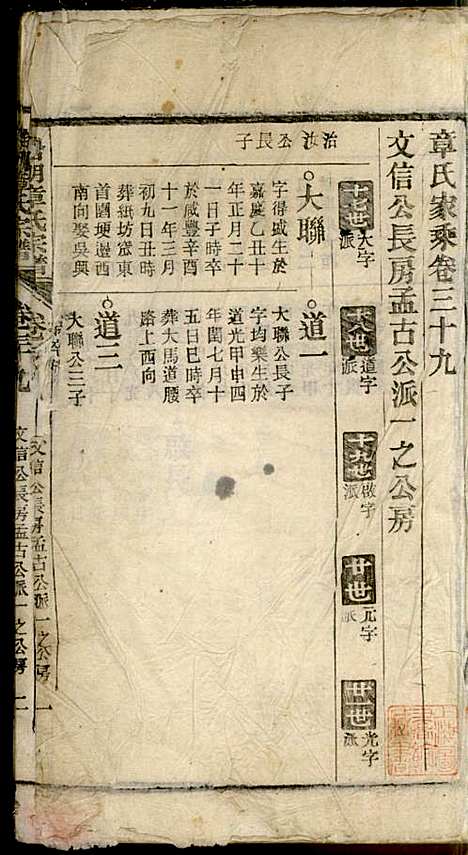 章氏家乘卷三十九
文信公長房孟古公派一之公房
十七世大字派
十八世道字派
十九世啟字派
廿世元字派
廿一世光字派
治汝公長子
大聯
字得盛生於
嘉慶乙丑十
年正月二十
一日子時卒
於咸豐辛酉
十一年三月
初九日丑時
葬紙坊窓東
首園埂邊酉
南向娶吳興
道一
大聯公長子
字均榮生於
道光甲申四
年閏七月十
五日巳時卒
葬大馬道腰
路上酉向
道三
大聯公三子
文信公長房孟古公派一之公房 一
文信公長房孟古公派一之公房 二